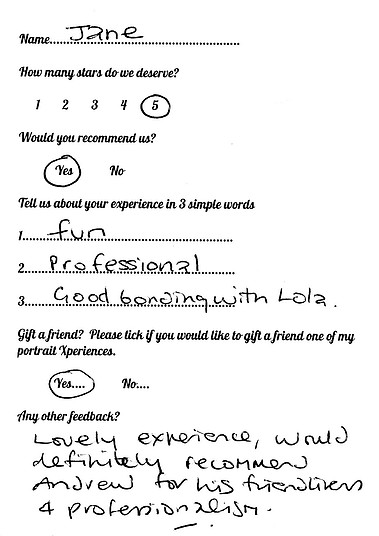 Name.... Jane
How many stars do we deserve?
1 2 3 4 5
Would you recommend us?
Yes No
Tell us about your experience in 3 simple words
1.... fun
2.... Professional
3.... Good bonding with Lola.
Gift a friend? Please tick if you would like to gift a friend one of my
portrait Xperiences.
Yes.... No....
Any other feedback?
Lovely experience, would
definitely recommend
Andrew for his friendliness
& professionalism.